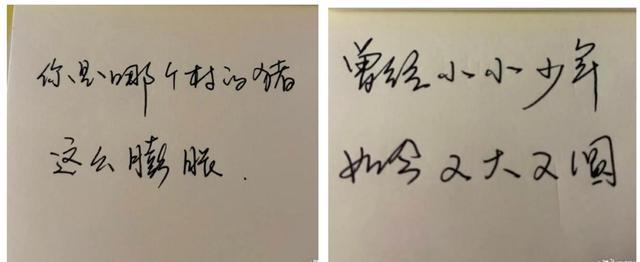 你是哪个村的猪
这么膨胀.
曾经小小少年
如今又大又圆